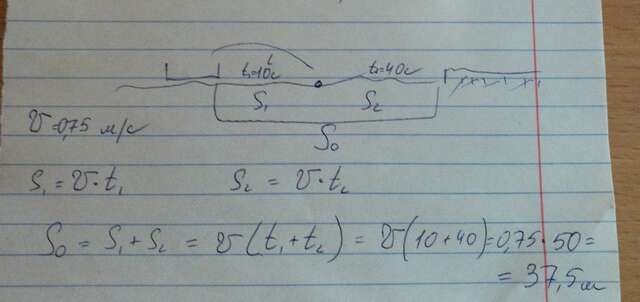 t
t₁=10с t₂=40с
S₁ S₂
S₀
v=0,75 м/с
S₁ = v·t₁ S₂ = v·t₂
S₀ = S₁+S₂ = v(t₁+t₂) = v(10+40)=0,75·50=
= 37,5м